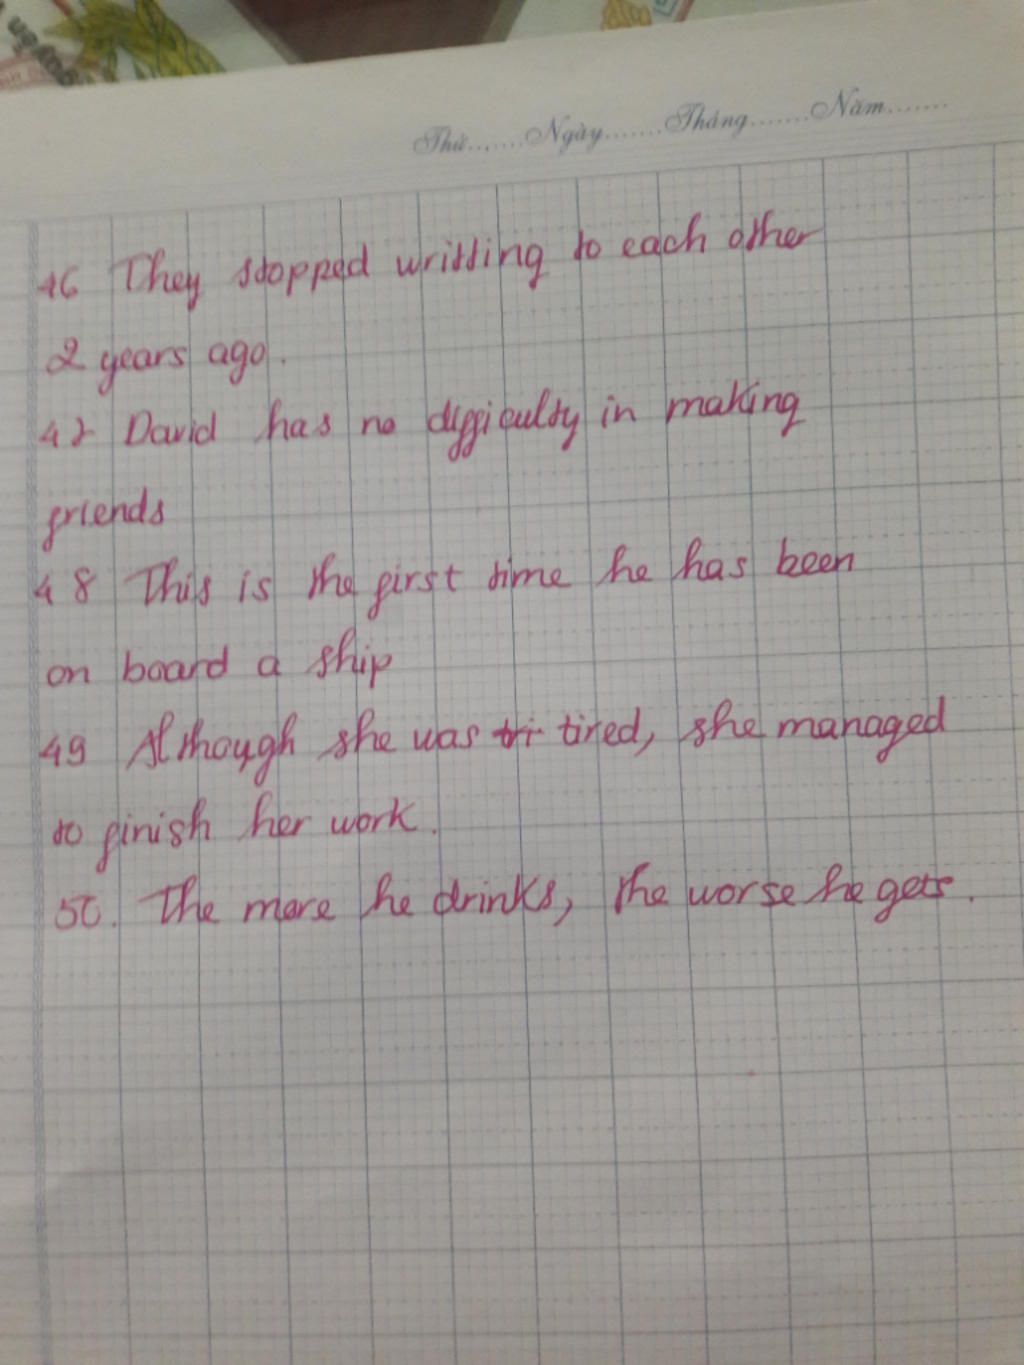 Thứ.......Ngày.......Tháng.......Năm.......
46 They stopped writting to each other
2 years ago.
47 David has no difficulty in making
friends
48 This is the first time he has been
on board a ship
49 Although she was tri tired, she managed
to finish her work.
50. The more he drinks, the worse he gets.